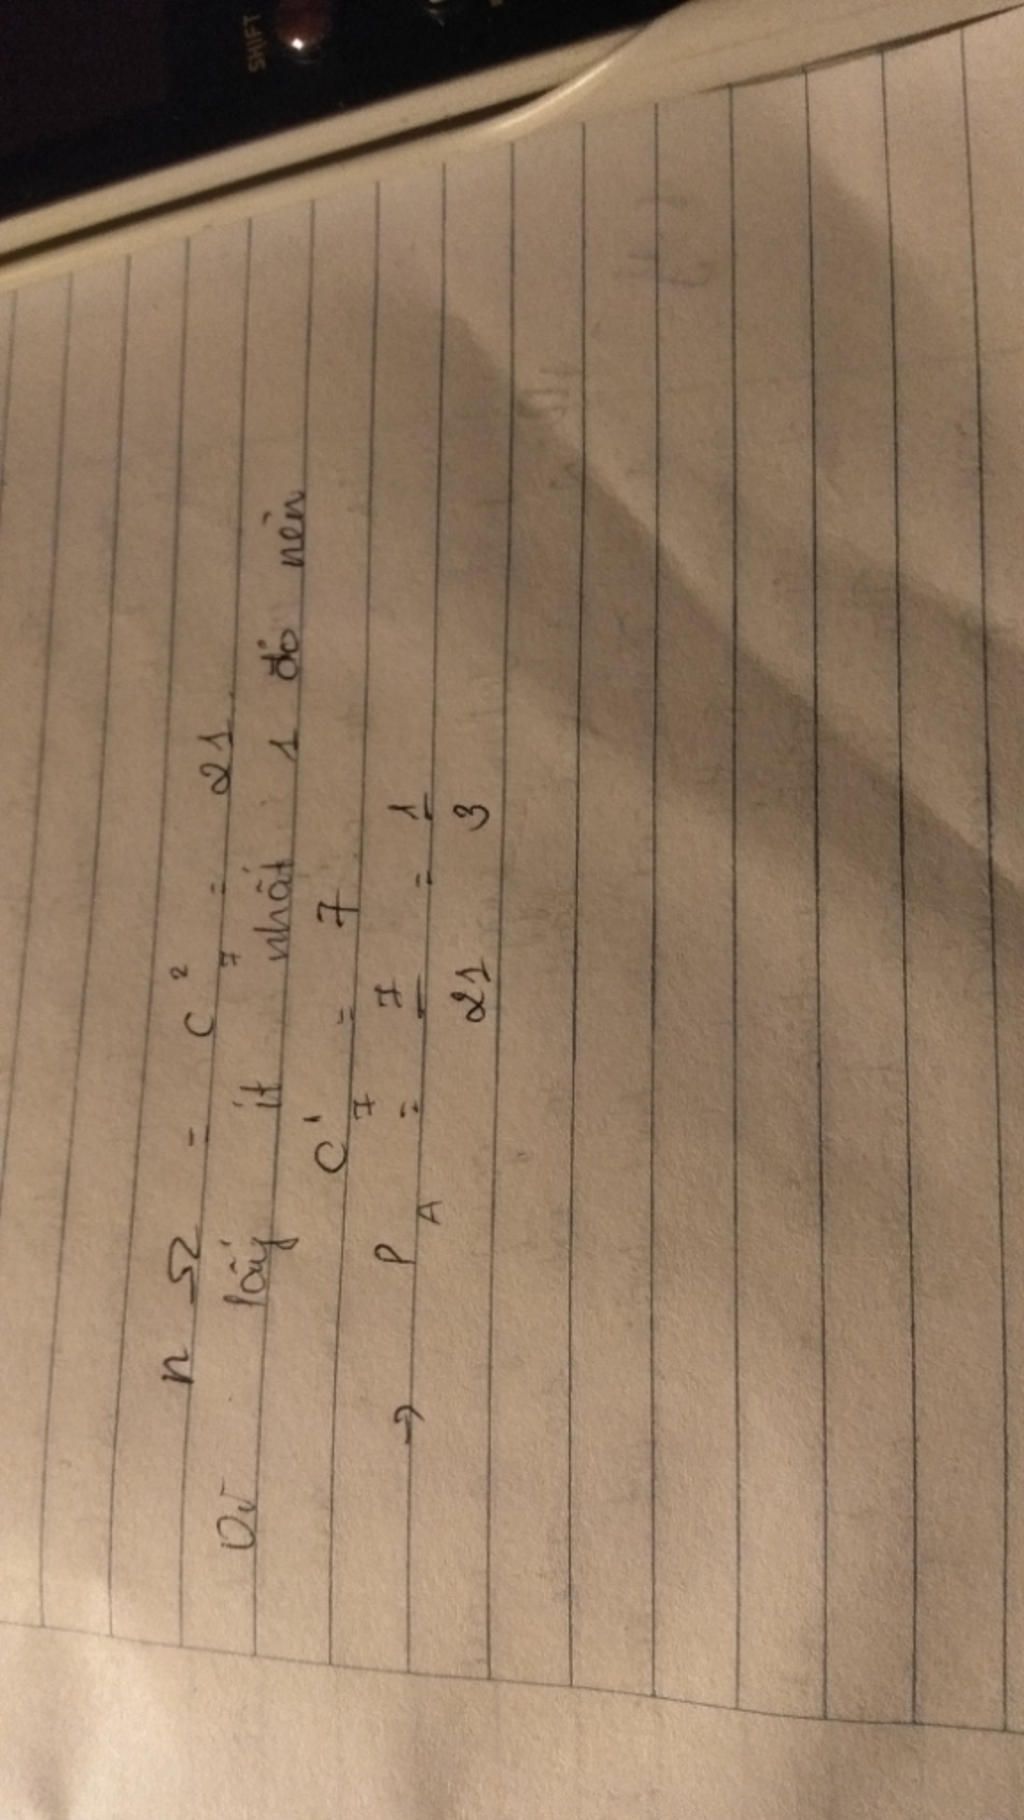 SHIFT
n Ω = C²₇ = 21
Vì lấy ít nhất 1 đỏ nên
C¹₇ = 7
→ P_A = 7/21 = 1/3